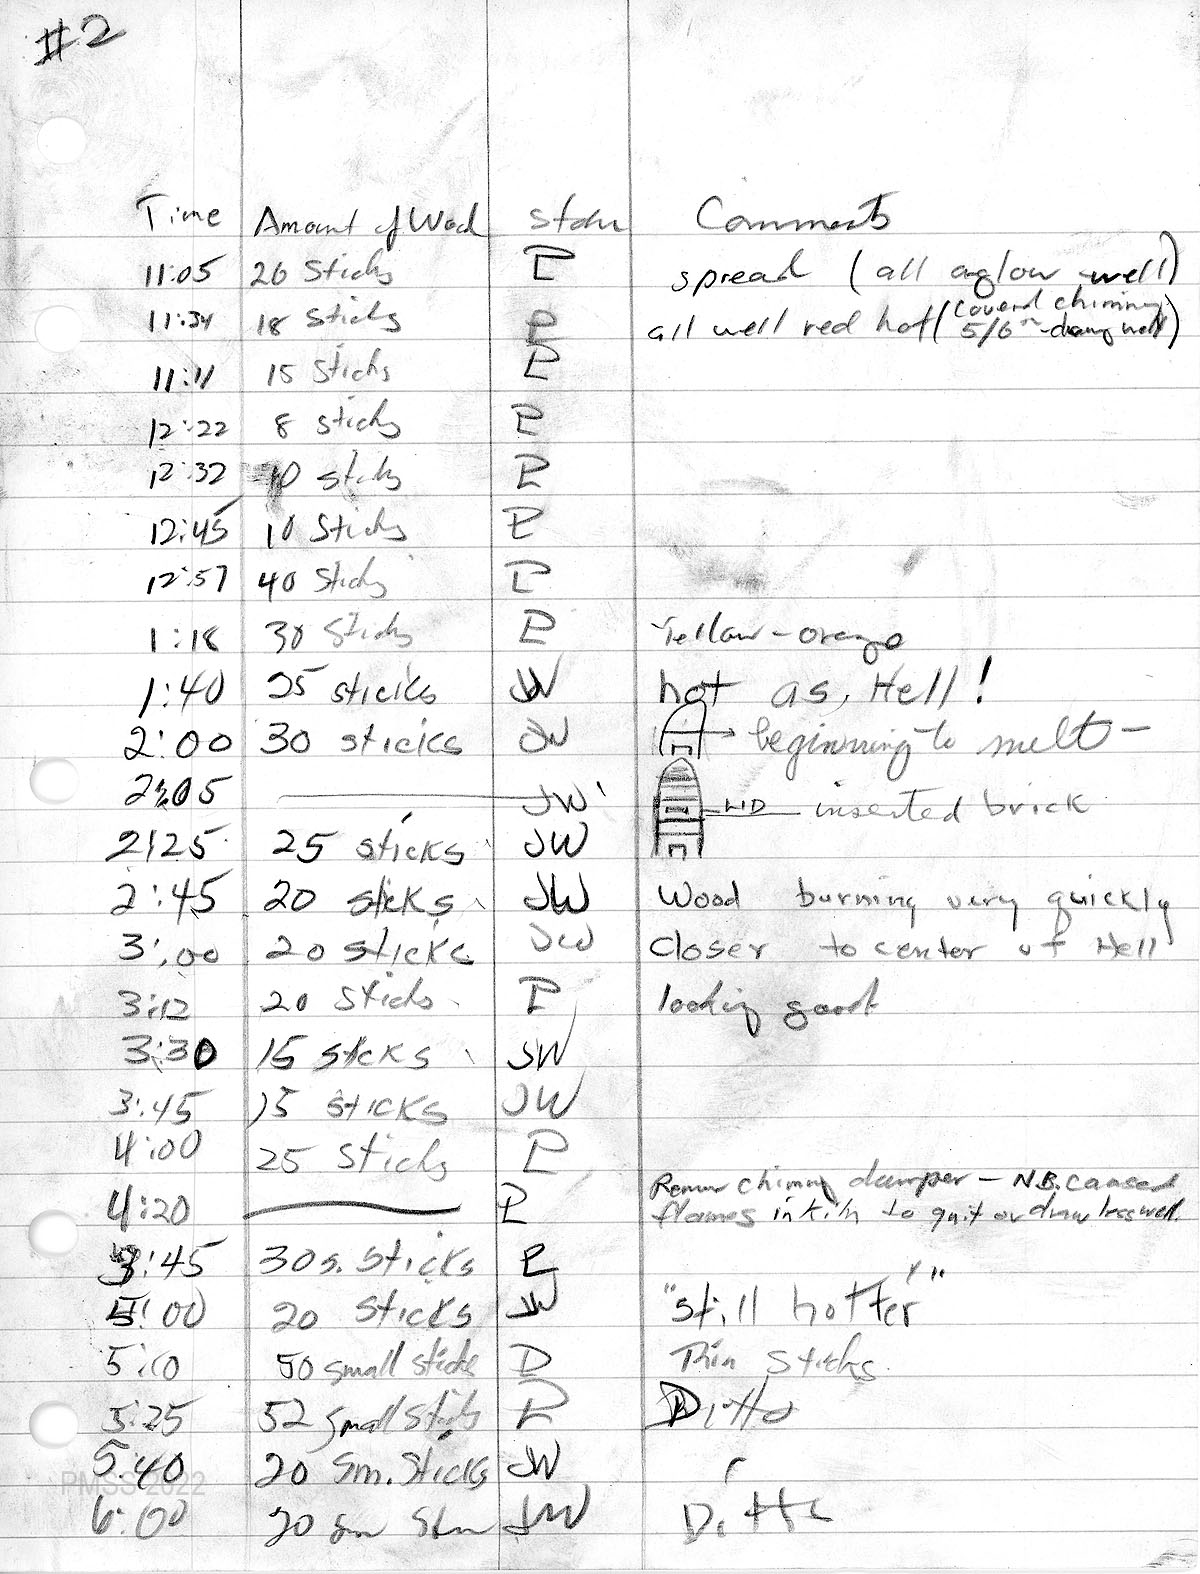 #2
Time Amount of Wood Stoker Comments
11:05 20 Sticks P spread (all aglow well)
11:34 18 Sticks P all well red hot (covered chimney 5/6ths - drawing well)
11:11 15 Sticks P
12:22 8 sticks P
12:32 10 sticks P
12:45 10 Sticks P
12:57 40 Sticks P
1:18 30 Sticks P Yellow-orange
1:40 25 sticks JW hot as, Hell!
2:00 30 sticks JW beginning to melt -
2:05 JW LID inserted brick
2:25 25 sticks JW
2:45 20 sticks JW Wood burning very quickly
3:00 20 sticks JW Closer to center of Hell
3:12 20 Sticks P looking good
3:30 15 sticks JW
3:45 15 sticks JW
4:00 25 Sticks P
4:20 P chimney damper - N.B. caused
flames in kiln to quit or draw less well.
3:45 30 s. sticks P
5:00 20 sticks JW "still hotter"
5:10 50 small sticks P Thin Sticks.
5:25 52 small sticks P Ditto
5:40 20 Sm. Sticks JW "
PMSS 2022
6:00 20 sm JW Ditto